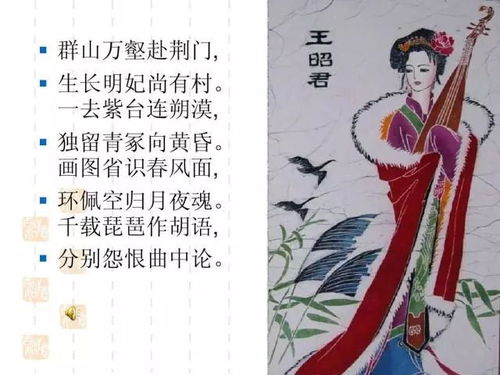 群山万壑赴荆门,
生长明妃尚有村。
一去紫台连朔漠,
独留青冢向黄昏。
画图省识春风面,
环佩空归月夜魂。
千载琵琶作胡语,
分别怨恨曲中论。
王昭君